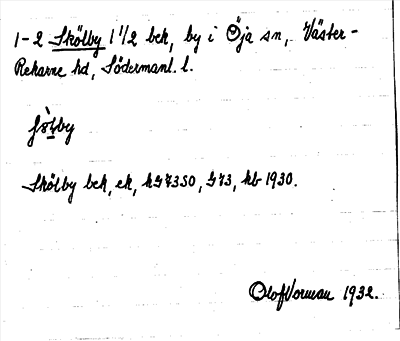 1-2 Skölby 1 1/2 bek, by i Öja sn, Väster-
Rekarne hd, Södermanl. l.
Skölby bek, ek, kG7350, G73, kb 1930.
Olof Vorman 1932.